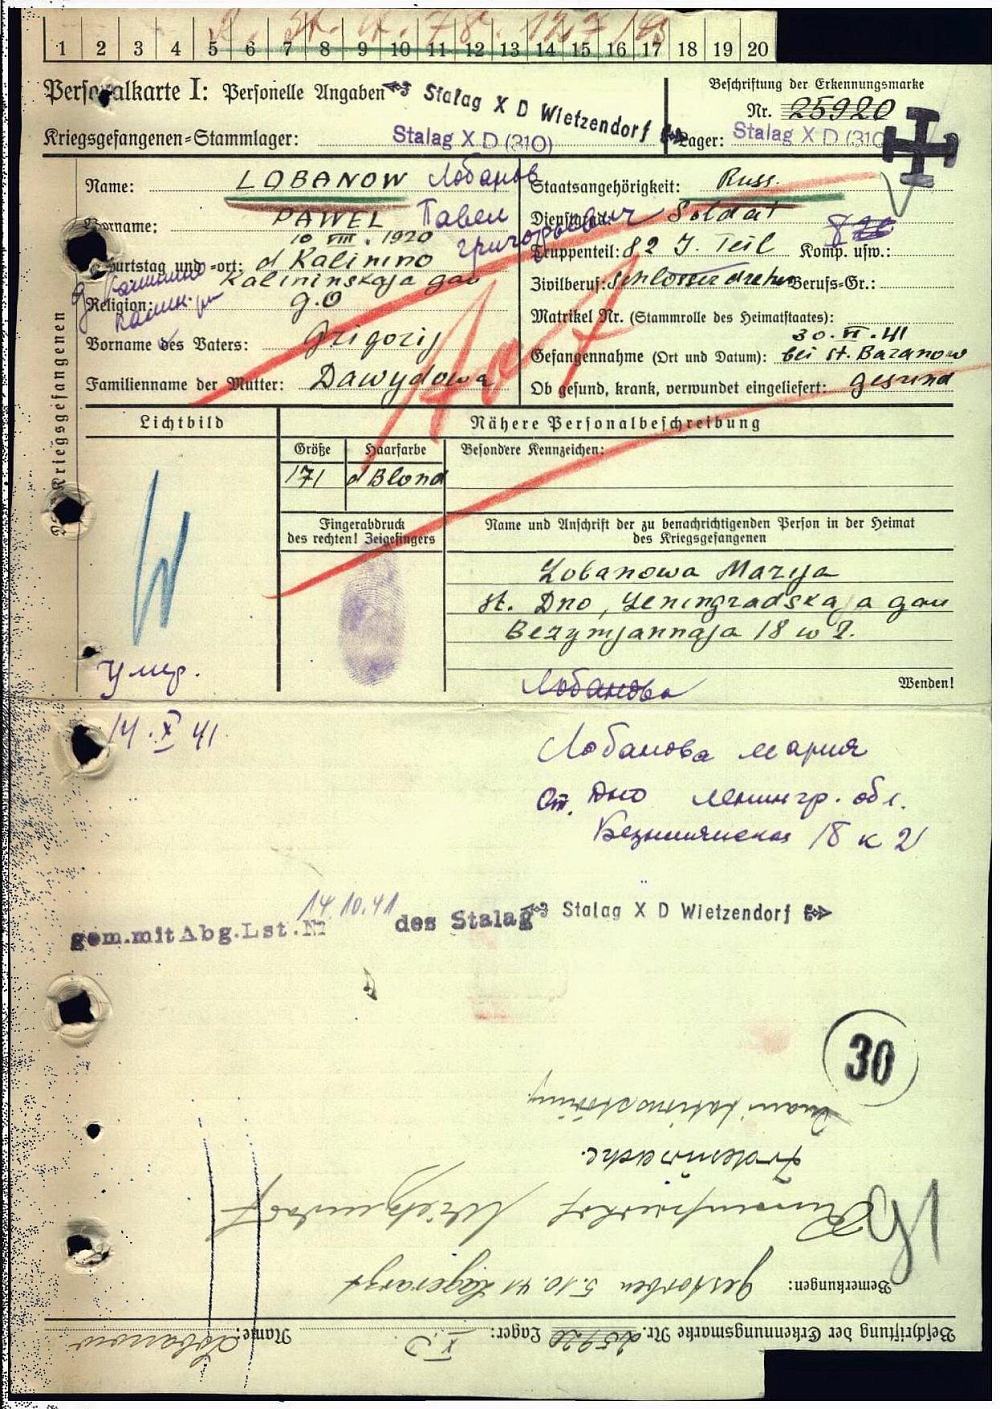 1 2 3 4 5 6 7 8 9 10 11 12 13 14 15 16 17 18 19 20
Personalkarte I: Personelle Angaben
Stalag X D Wietzendorf
Beschriftung der Erkennungsmarke
Nr. 25920
Kriegsgefangenen-Stammlager: Stalag X D (310)
Lager: Stalag X D (310
Des Kriegsgefangenen
Name: LOBANOW Лобанов
Staatsangehörigkeit: Russ.
Vorname: PAWEL Павел Григорьевич
Dienstgrad: Soldat
Geburtstag und -ort: 10 VIII. 1920 d Kalinino
Kalininskaja gau
Truppenteil: 82 J. Teil Komp. usw.:
Religion: g.o
Zivilberuf: Schlosser dreher Berufs-Gr.:
Matrikel Nr. (Stammrolle des Heimatstaates):
Vorname des Vaters: Grigorij
Gefangennahme (Ort und Datum): 30. VI. 41 bei st. Baranow
Familienname der Mutter: Dawydowa
Ob gesund, krank, verwundet eingeliefert: gesund
Lichtbild
Nähere Personalbeschreibung
Größe Haarfarbe Besondere Kennzeichen:
171 d Blond
Fingerabdruck
des rechten! Zeigefingers
Name und Anschrift der zu benachrichtigenden Person in der Heimat
des Kriegsgefangenen
Lobanowa Marija
st. Dno, Leningradskaja gau
Bezymjannaja 18 w 2.
умер.
Лобанова
Wenden!
14. X 41.
Лобанова Мария
ст. Дно Ленингр. обл.
18 к 2
14.10.41
gem.mit Abg.Lst.Nr des Stalag Stalag X D Wietzendorf
30
Beschriftung der Erkennungsmarke Nr. 25920 Lager: X D Name: Lobanow
Bemerkungen: gestorben 5.10.41 Lagerarzt
Wietzendorf
Todesursache: